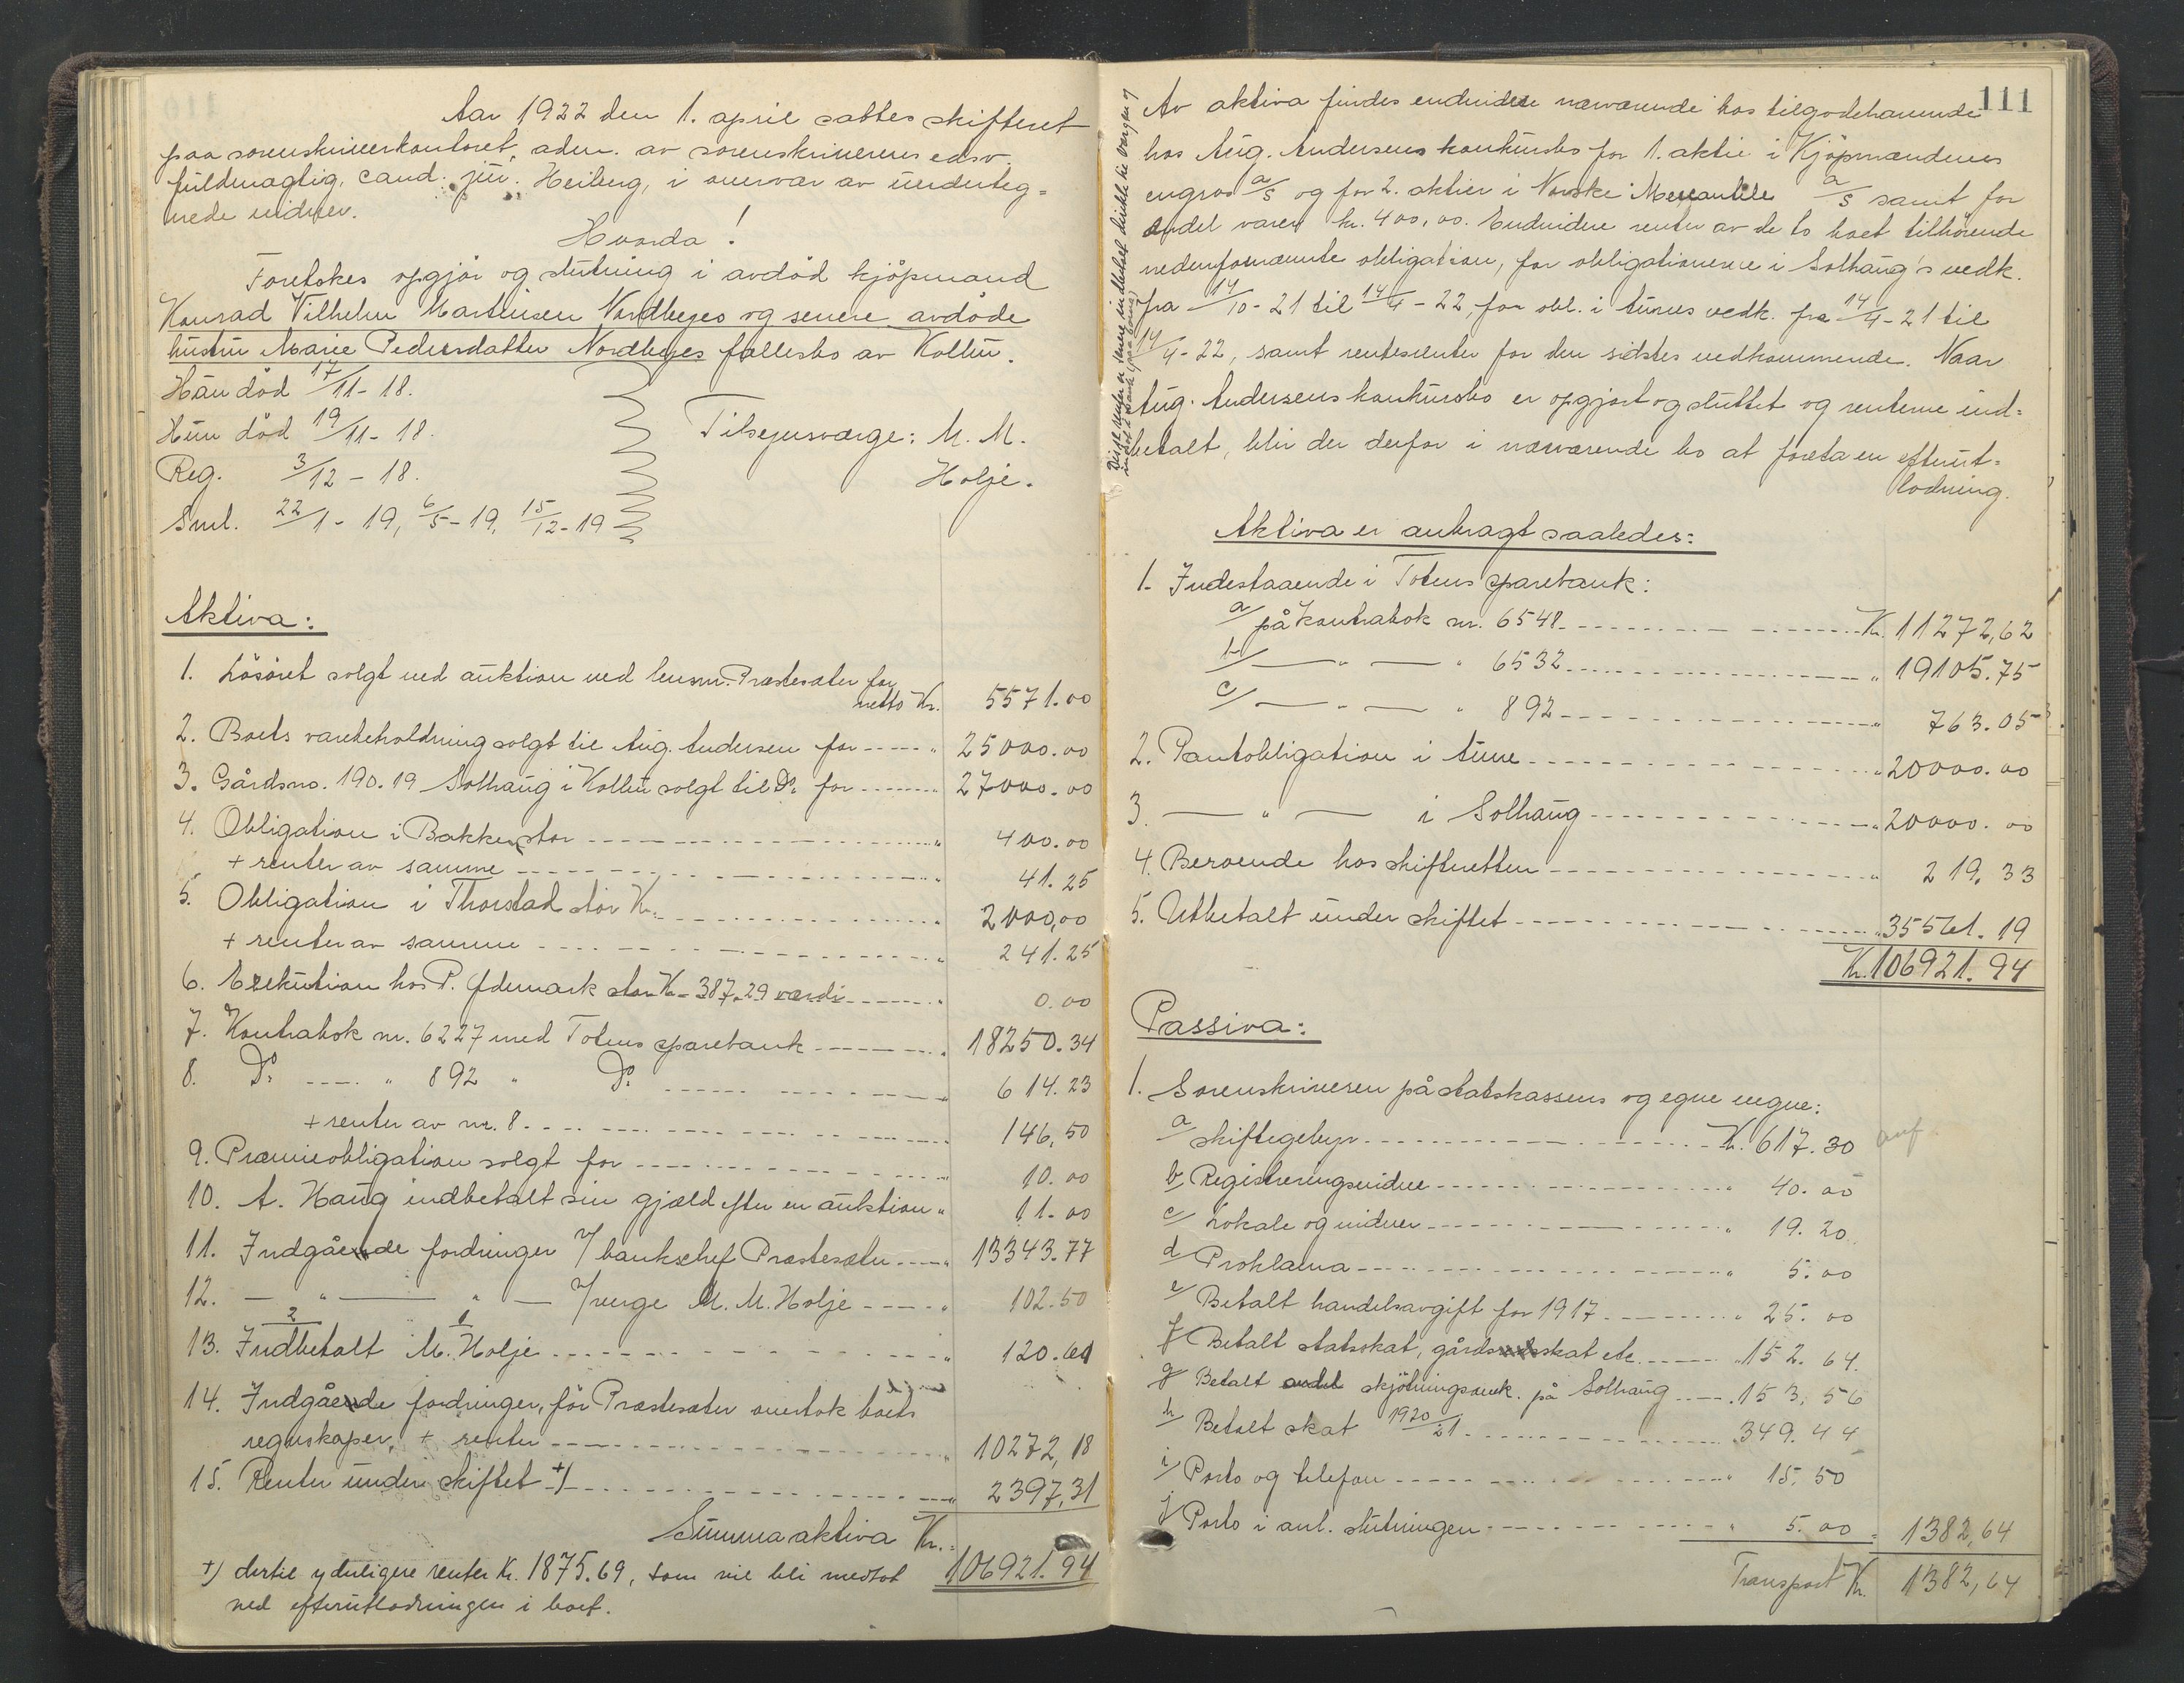 Aar 1922 den 1. april sattes skifteret
paa sorenskriverkontoret, adm. av sorenskriverens edsv.
fuldmægtig, cand. jur. Heiberg, i overvær av underteg=
nede vidner.
Hvorda!
Foretokes opgjör og slutning i avdöd kjöpmand
Konrad Vilhelm Martinsen Nordbyes og senere avdöde
hustru Marie Pedersdatter Nordbyes fællesbo av Kolbu.
Han död 17/11-18.
Hun död 19/11-18.
Tilsynsværge: M. M.
Reg. 3/12-18.
Holje.
Sml. 22/1-19, 6/5-19, 15/12-19
Aktiva:
1. Lösöret solgt ved auktion ved lensm. Præstesæter for
netto Kr. 5571.00
2. Boets varebeholdning solgt til Aug. Andersen for " 25000.00
3. Gårdsno. 190.19 Solhaug i Kolbu solgt til Do. for " 27000.00
4. Obligation i Bakke stor " 400.00
+ renter av samme " 41.25
5. Obligation i Thorstad stor Kr. " 2000,00
+ renter av samme " 241.25
6. Exekution hos P. Ødemark stor Kr. 387.29 værdi " 0.00
7. Kontrabok nr. 6227 med Totens sparebank " 18250.34
8. Do. " 892 " Do. " 614.23
+ renter av nr. 8. " 146,50
9. Præmieobligation solgt for " 10.00
10. A. Haug indbetalt sin gjæld efter en auktion " 11.00
11. Indgåede fordringer v/ bankchef Præstesæter " 13343.77
12. — " — " — v/verge M. M. Holje " 102.50
2 1
13. Indbetalt M. Holje " 120.61
14. Indgåede fordringer, för Præstesæter overtok boets
regnskaper, + renter " 10272,18
15. Renter under skiftet +) " 2397,31
Summa aktiva Kr. 106921.94
+) dertil yderligere renter kr. 1875.69, som vil bli medtat
ved efterutlodningen i boet.
111
Av aktiva findes endvidere nærværende bos tilgodehavende
hos Aug. Andersens konkursbo for 1. aktie i Kjöpmændenes
engros a/s og for 2. aktier i Norske Mercantile a/s samt for
endel varer kr. 400,00. Endvidere renter av de to boet tilhörende
nedenfornævnte obligation, for obligationerne i Solhaug's vedk.
fra 14/10-21 til 14/4-22, for obl. i Tunes vedk. fra 14/4-21 til
14/4-22, samt rentesrenter for den sidstes vedkommende. Naar
Aug. Andersens konkursbo er opgjort og sluttet og renterne ind=
betalt, blir der derfor i nærværende bo at foreta en efterut=
lodning.
Aktiva er anbragt saaledes:
1. Indestaaende i Totens sparebank:
a/ på kontrabok nr. 6548 Kr. 11272,62
b/ — " — " 6532 " 19105.75
c/ — " — " 892 " 763.05
2. Pantobligation i Tune " 20000.00
3. — " — i Solhaug " 20000.00
4. Beroende hos skifteretten " 219.33
5. Utbetalt under skiftet " 35561.19
Kr. 106921.94
Passiva:
1. Sorenskriveren på statskassens og egne vegne:
a/ skiftegebyr Kr. 617.30
b/ Registreringsvidner " 40.00
c/ Lokale og vidner " 19.20
d/ Proklama " 5.00
e/ Betalt handelsavgift for 1917 " 25.00
f/ Betalt statsskat, gårdsskat etc. " 152.64
g/ Betalt skjötningsomk. på Solhaug " 153.56
h/ Betalt skat 1920/21 349.44
i/ Porto og telefon " 15.50
j/ Porto i anl. slutningen " 5.00 = 1382,64
Transport Kr. 1382,64